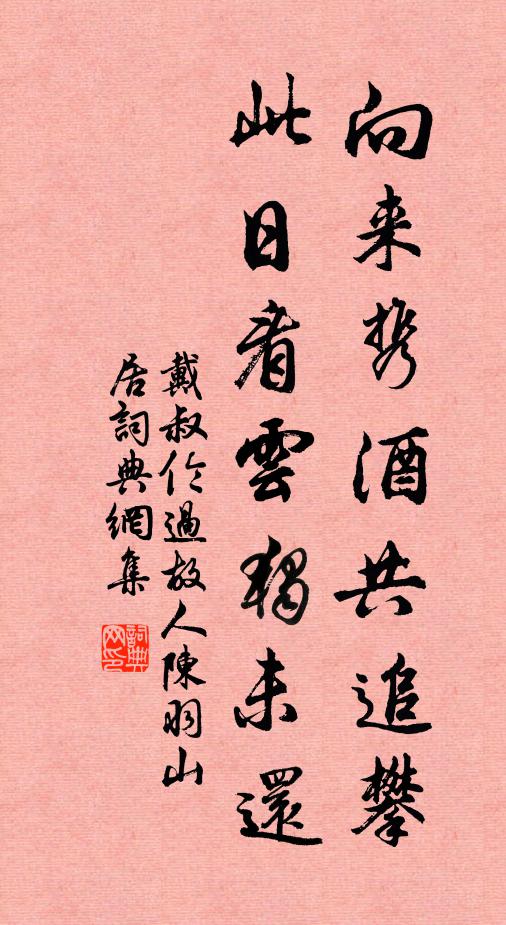 向来携酒共追攀
此日看雲獨未還
戴叔伦過故人陳羽山
居詞典網集
詞典网印